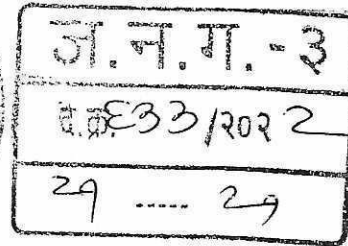 ज.न.ग.-३
द.क्र.६33/२०२2
२१ ..... २१